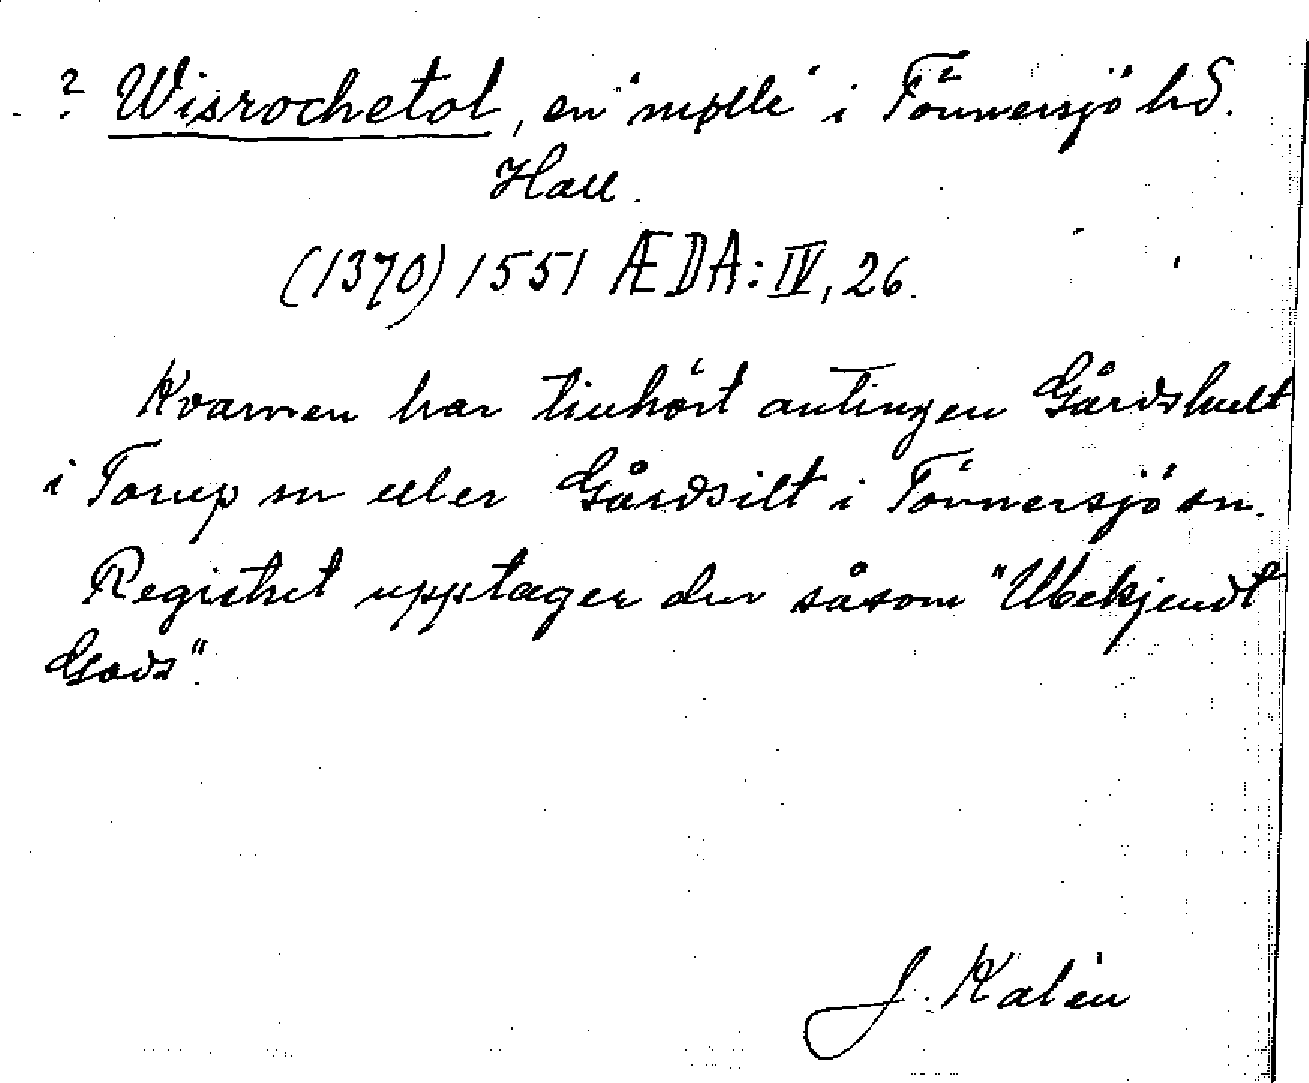 ? Wisrochetol, en "mølle" i Tönnersjö hd.
Hall.
(1370) 1551 ÆDA: IV, 26.
Kvarnen har tillhört antingen Gårdshult
i Torup sn eller Gårdsilt i Tönnersjö sn.
Registret upptager den såsom "Ubekjendt
Gods".
J. Kalén